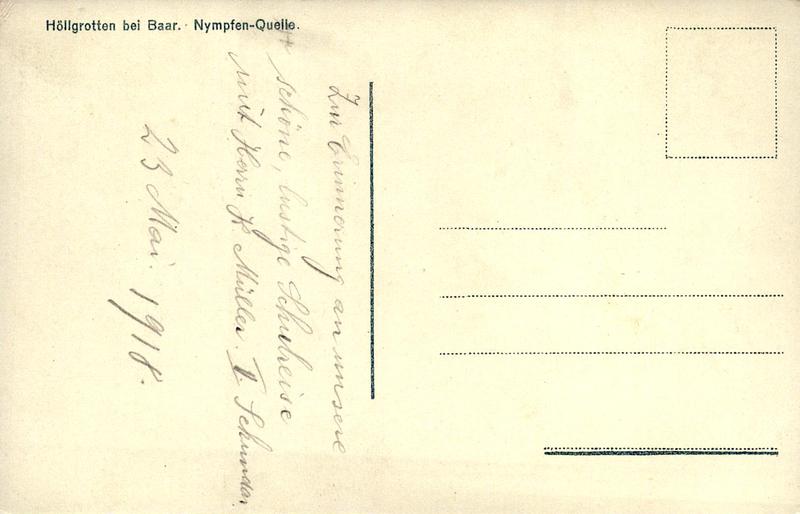 Höllgrotten bei Baar. · Nympfen-Quelle.
Zur Erinnerung an unsere
schöne, lustige Schulreise
mit Herrn K. Müller.
23 Mai. 1918.